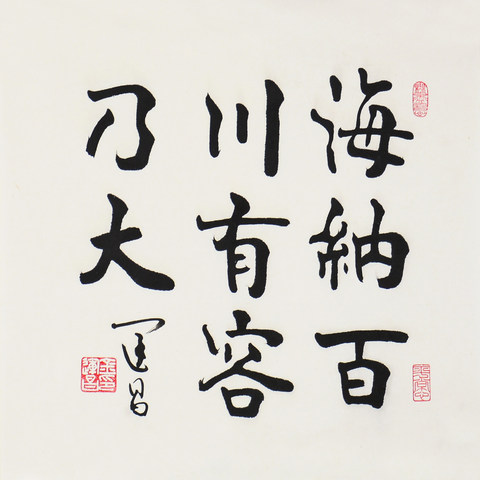 海納百
川有容
乃大
運昌